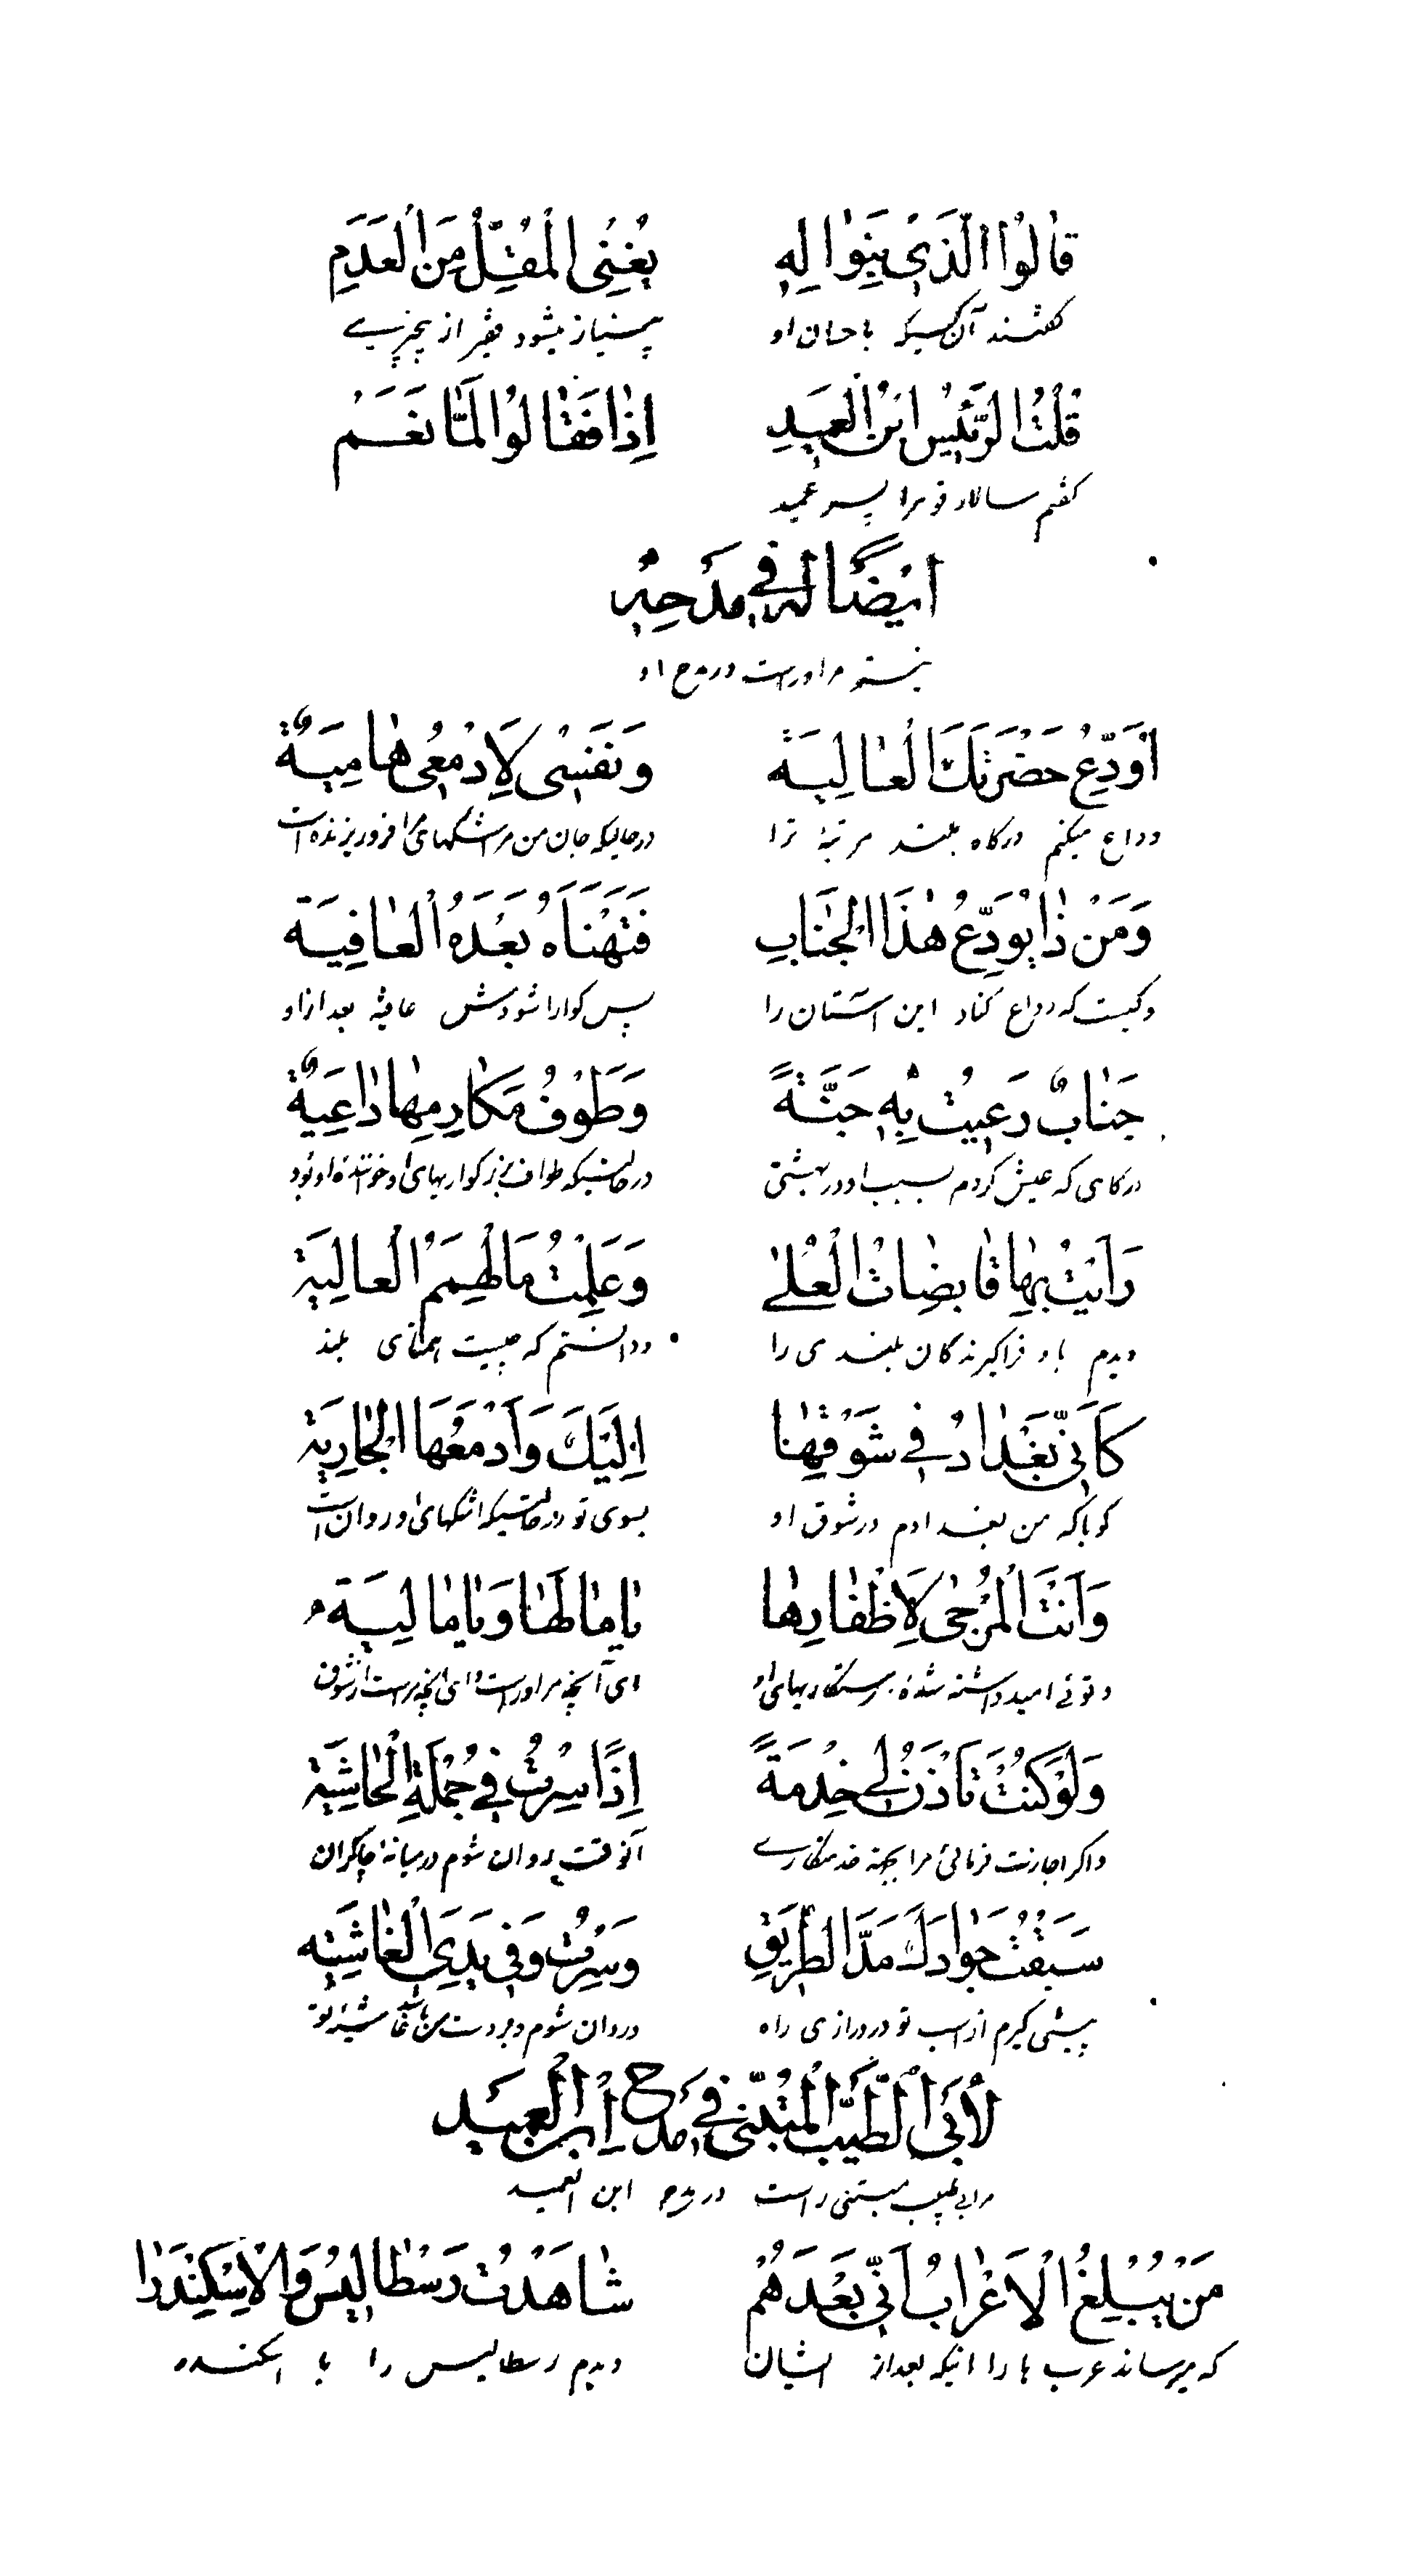 قٰالُوُا الَّذَىْ بِنَوٰالِهِ يُغْنِى الْمُقِلَّ مِنَ الْعَدَمِ
گفتند آن کسیکه باحسان او بینیاز میشود فقیر از بیچیزی
قُلْتُ الرَّئيٖسُ ابْنُ الْعَميٖدِ اِذٰا فَقٰالُوُا لَمّٰا نَعَمْ
گفتم سالار قوم را پسر عمید
اَيْضًا لَهُ فِي مَدْحِهِ
نیز مر اوراست در مدح او
اُوَدِّعُ حَضْرَتَكَ الْعٰالِيَةَ وَنَفْسٖى لِاَدْمُعٖى هٰامِيَةٌ
وداع میکنم درگاه بلند مرتبۀ ترا در حالیکه جان من مر اشکهای مرا فروریزنده است
وَمَنْ ذٰا يُوَدِّعُ هٰذَا الْجَنٰابِ فَتَهْنَاهُ بَعْدَهُ الْعٰافِيَة
و کیست که وداع کناد این آستان را پس گوارا شودش عافیة بعد از او
جَنٰابٌ رَعَيْتُ بِهِ جَنَّةً وَطَوْفُ مَكٰارِمِهٰا دٰاعِيَةٌ
درگاهی که عیش کردم بسبب او در بهشتی در حالتیکه طواف بزرگواریهای او خوانندۀ او بود
رَاَيْتُ بِهٰا قٰابِضٰاتُ الْعُلىٰ وَعَلِمْتُ مَا لْهِمَمُ الْعالِيَة
دیدم باو فراگیرندگان بلندی را ودانستم که چیست همتهای بلند
كَاَنّٖى بَغْدٰادُ فٖي شَوْقِهٰا اِلَيْكَ وَاَدْمُعُهَا الْجٰارِيَة
گویا که من بغدادم در شوق او بسوی تو در حالتیکه اشکهای او روان است
وَاَنْتَ الْمُرَجّٰى لِاَظْفٰارِهٰا يٰا مٰالَهٰا وَيٰا مٰالِيَه
و توئی امید داشته شده برستگاریهای او ای آنچه مر اوراست و ای آنچه مراست از شوق
وَلَوْ كُنْتَ تَاْذَنُ لٖي خِدْمَةً اِذًا سِرْتُ فٖي جُمْلَةِ الْحٰاشِيَة
واگر اجازت فرمائی مرا بجهة خدمتکاری آنوقت روان شوم در میانۀ چاکران
سَبَقْتُ جَوٰادَكَ مَدَّ الطَّرٖيْقِ وَسِرْتُ وَفٖي يَدِىَ الْغٰاشِيَه
پیشی گیرم از اسب تو در درازی راه و روان شوم و در دست من باشد غاشیۀ تو
لِأَبِي الطَّيِّبِ الْمُتَنَبّٖى فٖي مَدْحِ اِبْنِ الْعَميٖد
مر ابی طیب متنبی راست در مدح ابن العمید
مَنْ يُبْلِغُ الْاَعْرٰابَ اَنّٖى بَعْدَهُمْ شٰاهَدْتُ رَسْطٰالٖيسَ وَالْاِسْكَنْدَرٰا
که میرساند عرب ها را اینکه بعد از ایشان دیدم رسطالیس را با اسکندر